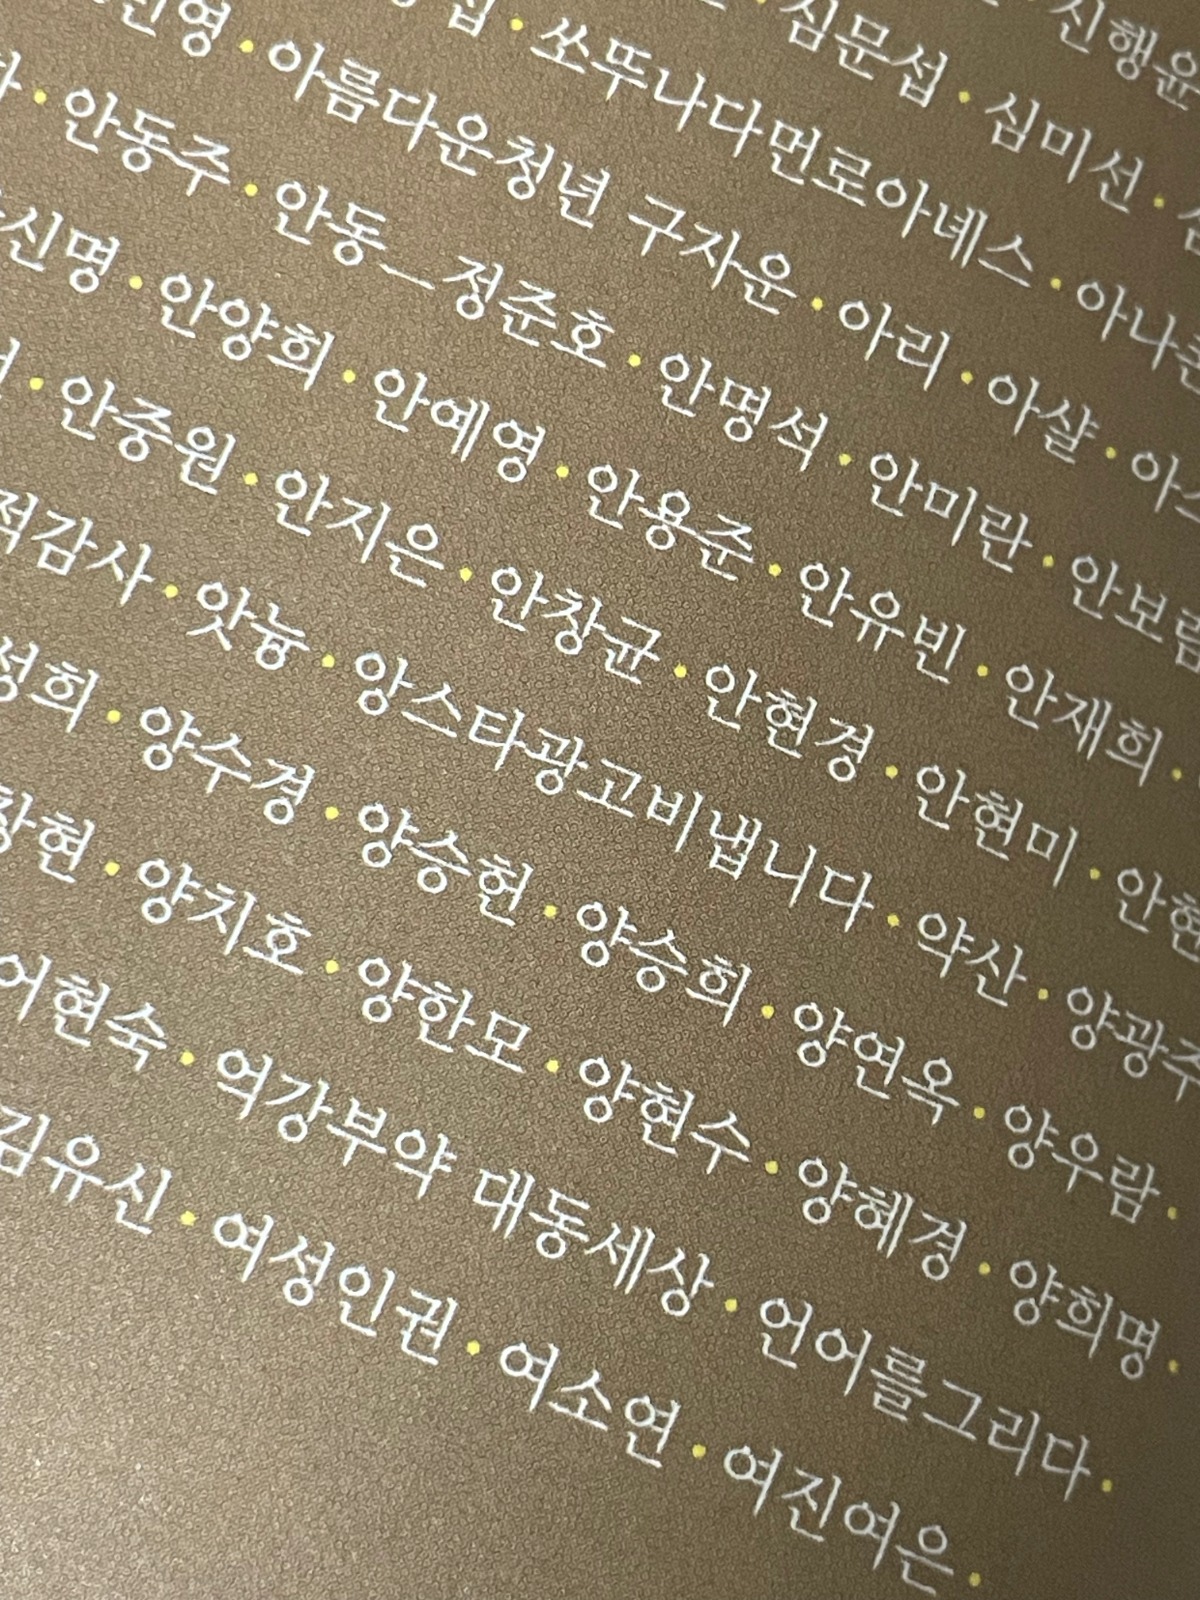 · 신행윤
· 심문섭 · 심미선 ·
· 쏘뚜나다먼로아녜스 ·
· 아름다운청년 구자운 · 아리 · 아샬 ·
· 안동주 · 안동_정준호 · 안명석 · 안미란 · 안보림
신명 · 안양희 · 안예영 · 안용준 · 안유빈 · 안재희 ·
· 안중원 · 안지은 · 안창균 · 안현경 · 안현미 ·
적감사 · 앗늉 · 앙스타광고비냅니다 · 약산 · 양광주
성희 · 양수경 · 양승헌 · 양승희 · 양연옥 · 양우람 ·
창현 · 양치호 · 양한모 · 양현수 · 양혜경 · 양희명 ·
어현숙 · 억강부약 대동세상 · 언어를그리다 ·
김유신 · 여성인권 · 여소연 · 여진여은 ·